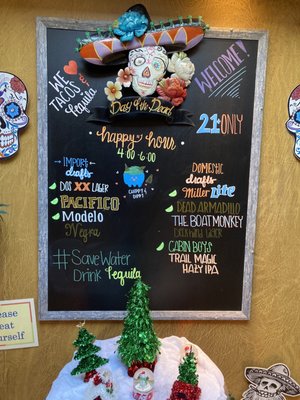 WE
TACOS
&
TEQUILA
Day 9th Dead
WELCOME!
21 ONLY
happy hour
4:00-6:00
IMPORT
drafts
DOS XX LAGER
PACIFICO
Modelo
Negra
DOMESTIC
drafts
Miller Lite
DEAD ARMADILLO
THE BOAT MONKEY
CABIN BOYS
TRAIL MAGIC
HAZY IPA
CHIPPY
DIPPY
#SAVEWATER
DRINK Tequila